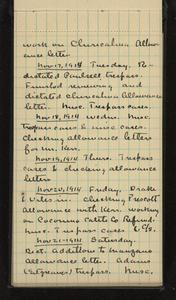 work on Chiricahua Allow-
ance letter.
Nov. 17, 1914 Tuesday. Re-
dictated Pantrell trespass.
Finished reviewing and
dictated Chiricahua Allowance
letter. Misc. Trespass cases.
Nov. 18, 1914 Wedns. Misc.
Trespass cases & misc. cases.
Checking allowance letters
for Mr. Kerr.
Nov. 19, 1914 Thurs. Trespass
cases & checking allowance
letters.
Nov. 20, 1914 Friday. Drake
& Wiles in. Checking Prescott
Allowance with Kerr. Working
on Coconino Cattle Co. Refund.
Misc. Trespass cases
Nov. 21, 1914 Saturday.
Dict. Additions to Manzano
Allowance letter. Adams
trespass. Misc.